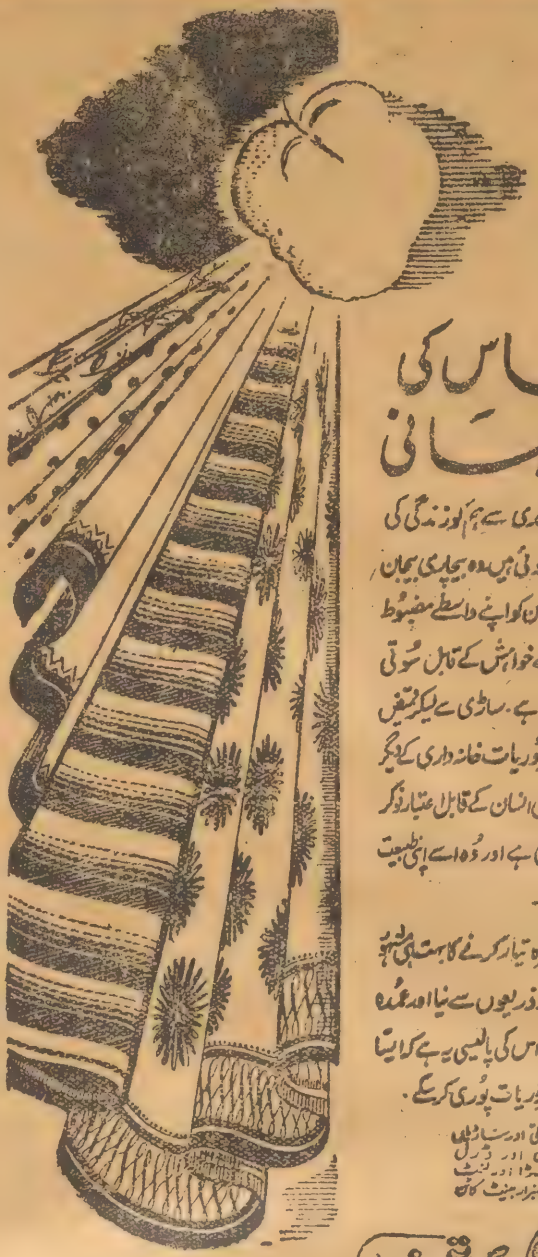 اس کی
انی
ری سے ہم کو زندگی کی
وئی ہیں وہ بیچاری بیجان
ن کو اپنے واسطے مضبوط
خواہش کے قابل سُوتی
ہے۔ ساڑی سے لیکر قمیض
وریات خانہ داری کے دیگر
انسان کے قابل اعتبار نوکر
ہے اور وُہ اسے اپنی طبیعت
ہ تیار کرنے کا بہت ہی مشہو
ذریعوں سے نیا اور عُمدہ
اس کی پالیسی یہ ہے کہ ایسا
ریات پُوری کرسکے۔
اور ساڑیاں
اور ڈرل